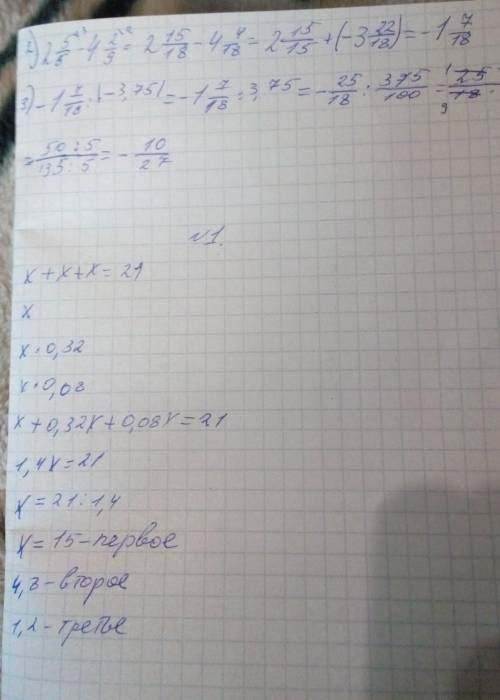 2) 2 5/6 ·3 - 4 2/9 ·2 = 2 15/18 - 4 4/18 = 2 15/15 + (-3 22/18) = -1 7/18
3) -1 7/18 : |-3,75| = -1 7/18 : 3,75 = -25/18 : 375/100 = 25/18 ·
= 50:5/135:5 = -10/27
№1.
x + x + x = 21
x
x · 0,32
x · 0,08
x + 0,32x + 0,08x = 21
1,4x = 21
x = 21 : 1,4
x = 15 - первое
4,8 - второе
1,2 - третье